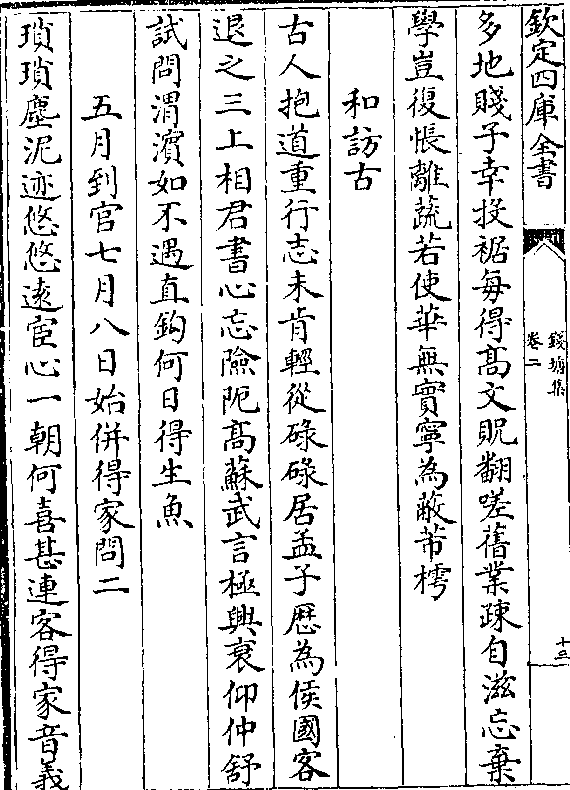 欽定四庫全書
錢塘集
卷二
十三
多地賤子幸投裾每得高文貺翻嗟舊業疎自滋忘棄
學豈復悵離蔬若使華無實寧為蔽芾樗
和訪古
古人抱道重行志未肯輕從碌碌居孟子歴為侯國客
退之三上相君書心忘險阨高蘇武言極興衰仰仲舒
試問渭濱如不遇直鈎何日得生魚
五月到官七月八日始併得家問二
瑣瑣塵泥迹悠悠逺宦心一朝何喜甚連客得家音義